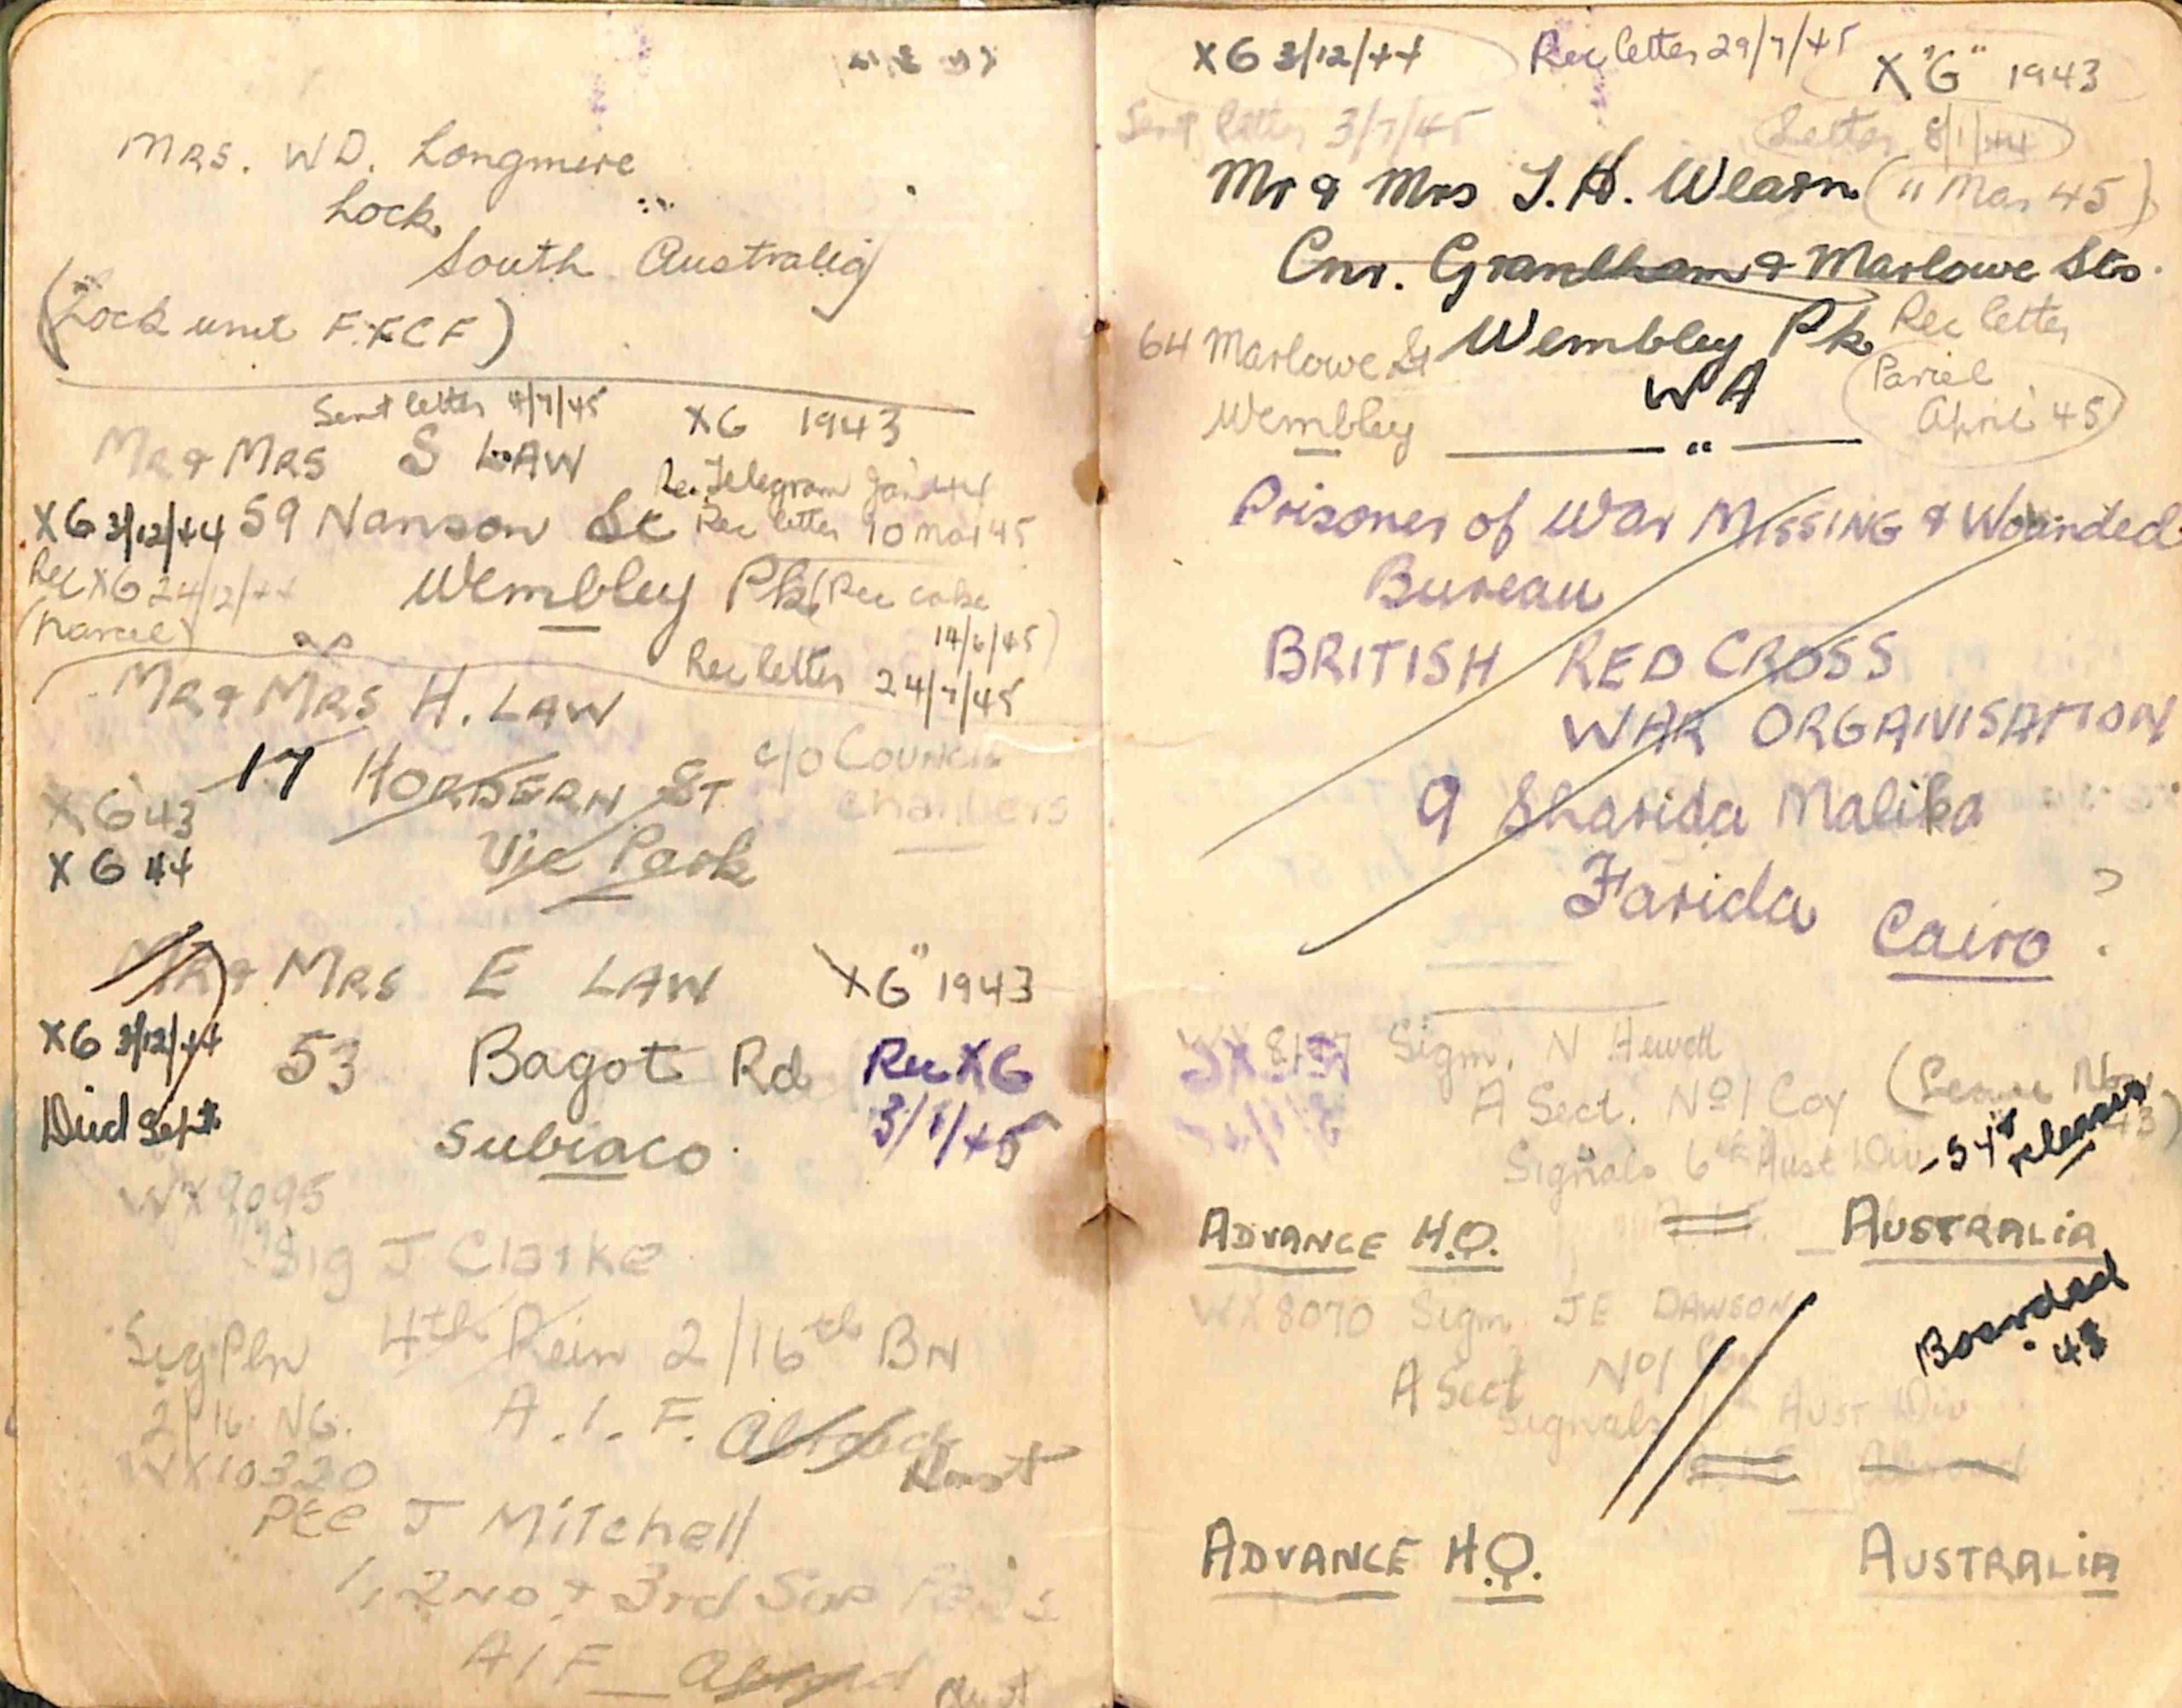 MRS. WD. Longmire
Lock,
South Australia
(Lock unit F.F.C.F)
Sent letter 4/7/45
XG 1943
MR & MRS S LAW
Rec Telegram Jan 44
XG 3/12/44 59 Nanson St Rec letter 10 Mar 45
Rec XG 24/12/44
Wembley Pk (Rec cake
14/6/45)
(Parcel)
Rec letter 24/7/45
MR & MRS H. LAW
17 HORDERN ST c/o Council
Chambers
XG 43
XG 44
Vic Park
MR & MRS E LAW XG" 1943
XG 3/12/44
53 Bagot Rd Rec XG
3/1/45
Died Sept
Subiaco.
WX9095
Sig J Clarke
Sig Pln 4th Rein 2/16th BN
2/16 NG.
A.I.F. Abroad
Aust
WX10320
Pte J Mitchell
1, 2ND & 3rd Sup
AIF Abroad
Aust
XG 3/12/44 Rec letter 29/7/45 X"G" 1943
Sent letter 3/7/45 Letter 8/1/44
Mr & Mrs J. H. Wearn (" Mar 45)
Cnr. Grantham & Marlowe Sts.
64 Marlowe St Wembley Pk Rec letter
Wembley
WA
Parcel
April 45
Prisoner of War MISSING & Wounded
Bureau
BRITISH RED CROSS
WAR ORGANISATION
9 Sharida Malika
Farida Cairo ?
Sigm. N Hewett
A Sect. No 1 Coy (Leave Nov
43)
Signals 6th Aust Div
release
ADVANCE H.Q. AUSTRALIA
WX8070 Sigm JE DAWSON
Boarded
43
A Sect No 1 Coy
Signals Aust Div
ADVANCE H.Q. AUSTRALIA